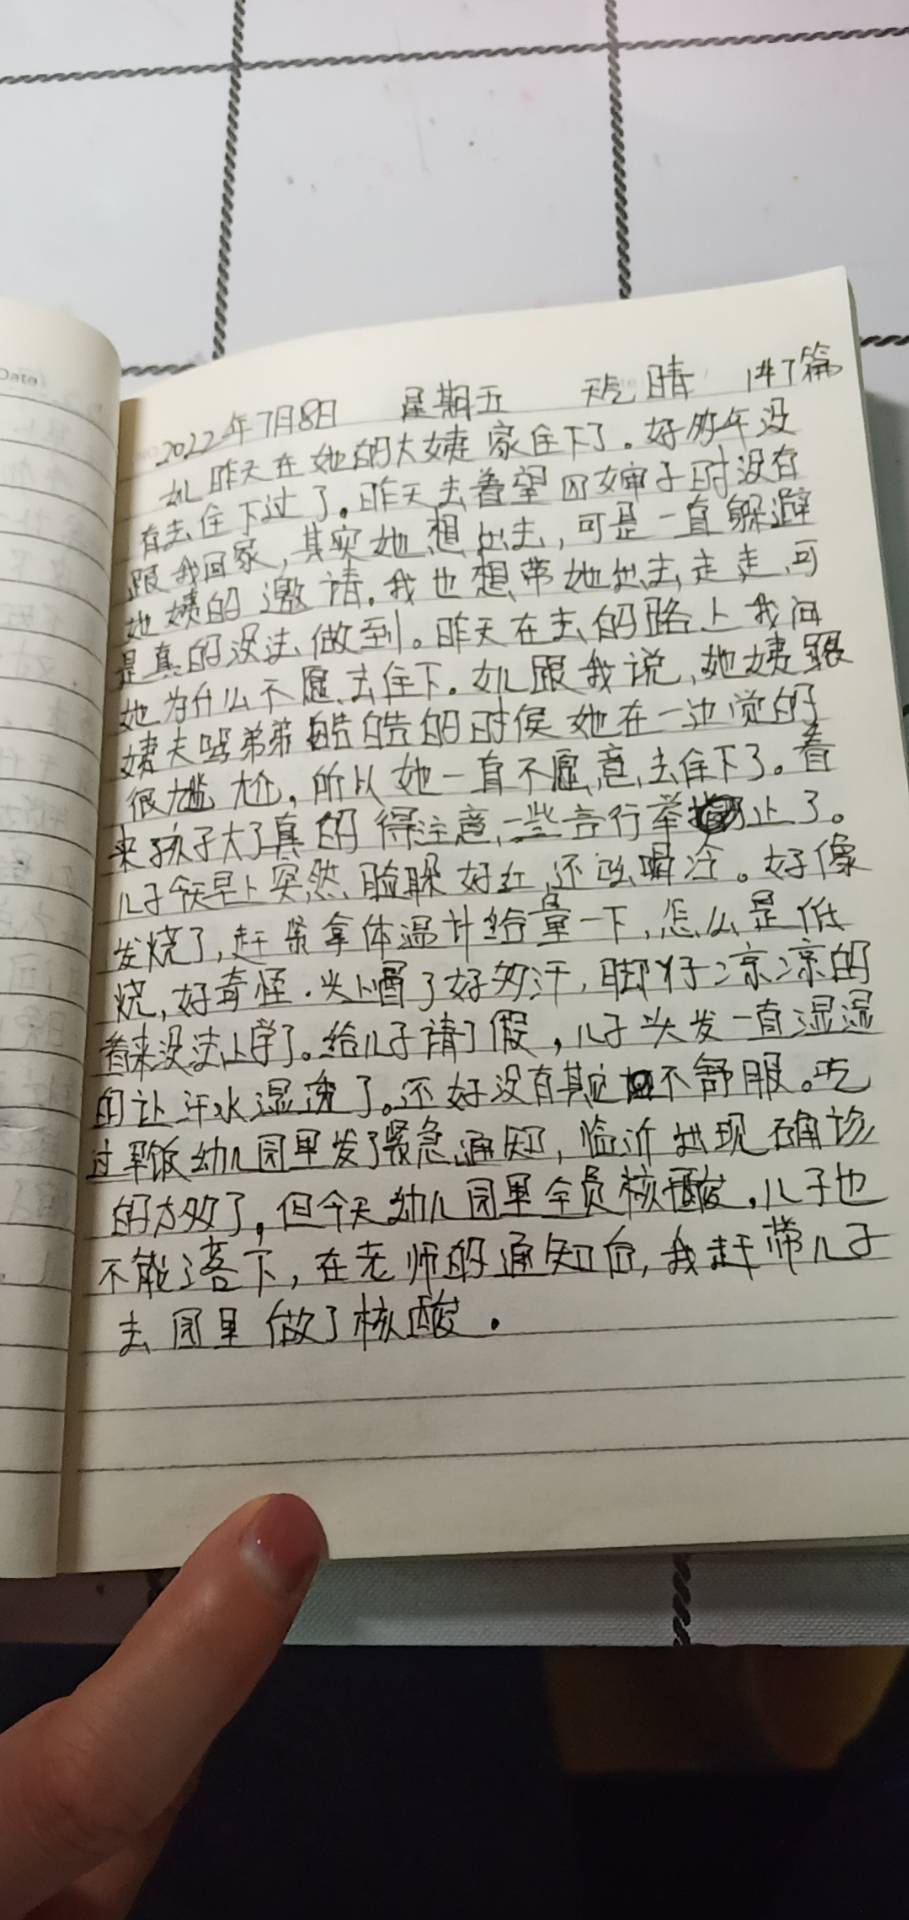 Date
2022年7月8日 星期五 天气晴 147篇
女儿昨天在她的大姨家住下了。好多年没
有去住下过了。昨天去看望四婶子时没有
跟我回家,其实她想出去,可是一直躲避
她姨的邀请。我也想带她出去走走,可
是真的没法做到。昨天在去的路上我问
她为什么不愿去住下。女儿跟我说,她姨跟
姨夫骂弟弟皓皓的时候她在一边觉的
很尴尬,所以她一直不愿意去住下了。看
来孩子大了真的得注意一些言行举止了。
儿子今天早上突然脸躁好红,还说嘴冷。好像
发烧了,赶紧拿体温计给量一下,怎么是低
烧,好奇怪。头上冒了好多汗,脚丫子凉凉的
看来没法上学了。给儿子请了假,儿子头发一直湿湿
的让汗水湿透了。还好没有其它不舒服。吃
过早饭幼儿园里发了紧急通知,临沂出现确诊
的方效了,但今天幼儿园里全员核酸,儿子也
不能落下,在老师的通知后,我赶带儿子
去园里做了核酸。